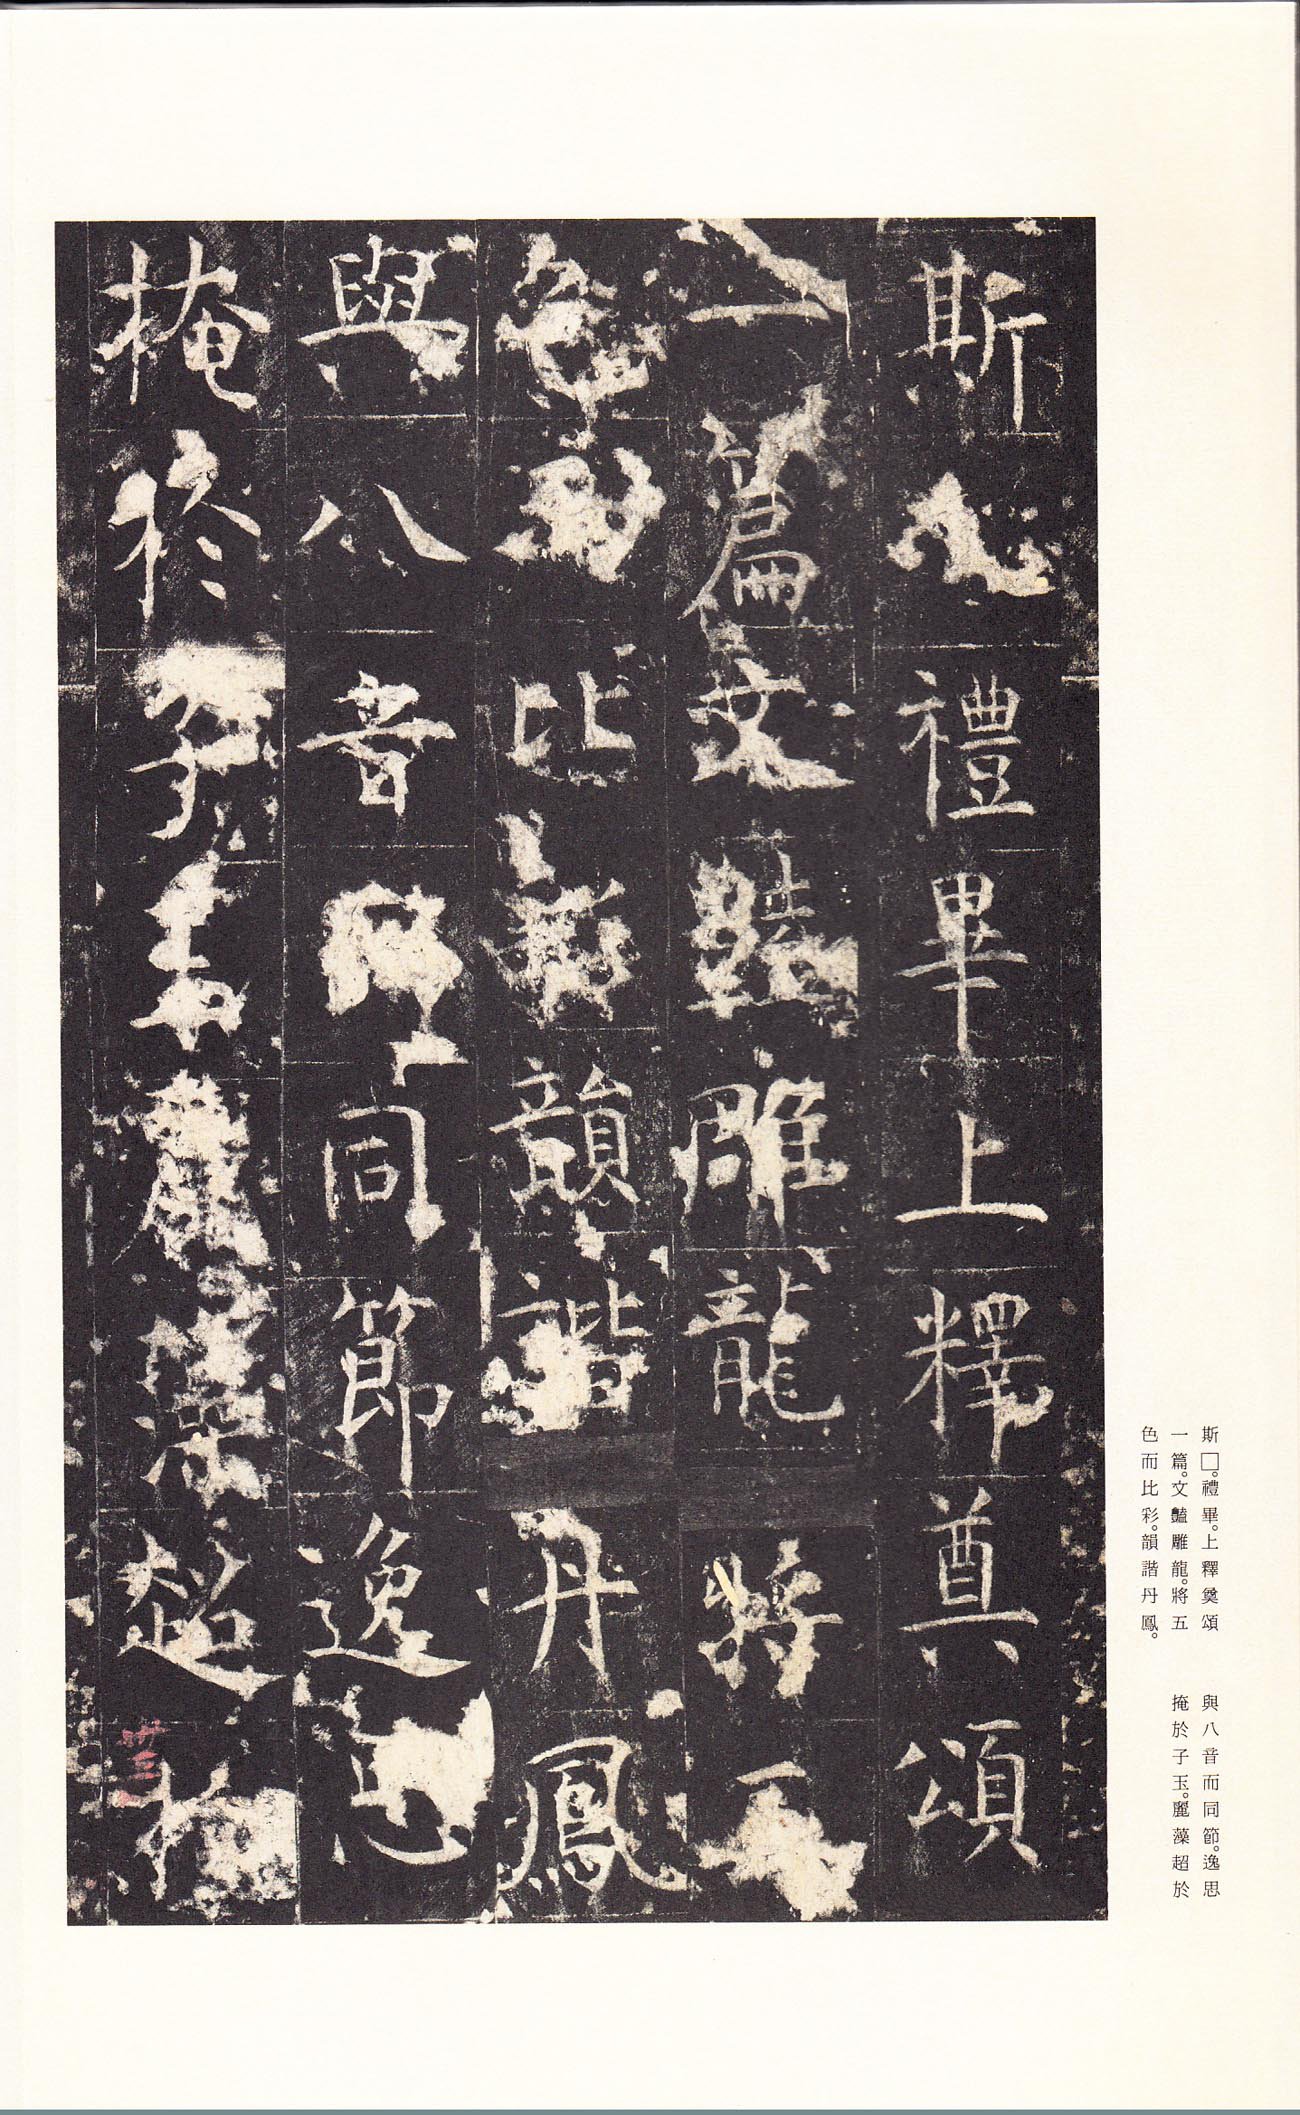 斯禮畢上釋奠頌
一篇文豔雕龍將五
色而比彩韻諧丹鳳
與八音而同節逸思
掩於子玉麗藻超於
斯□。禮畢。上釋奠頌
一篇。文豔雕龍。將五
色而比彩。韻諧丹鳳。
與八音而同節。逸思
掩於子玉。麗藻超於